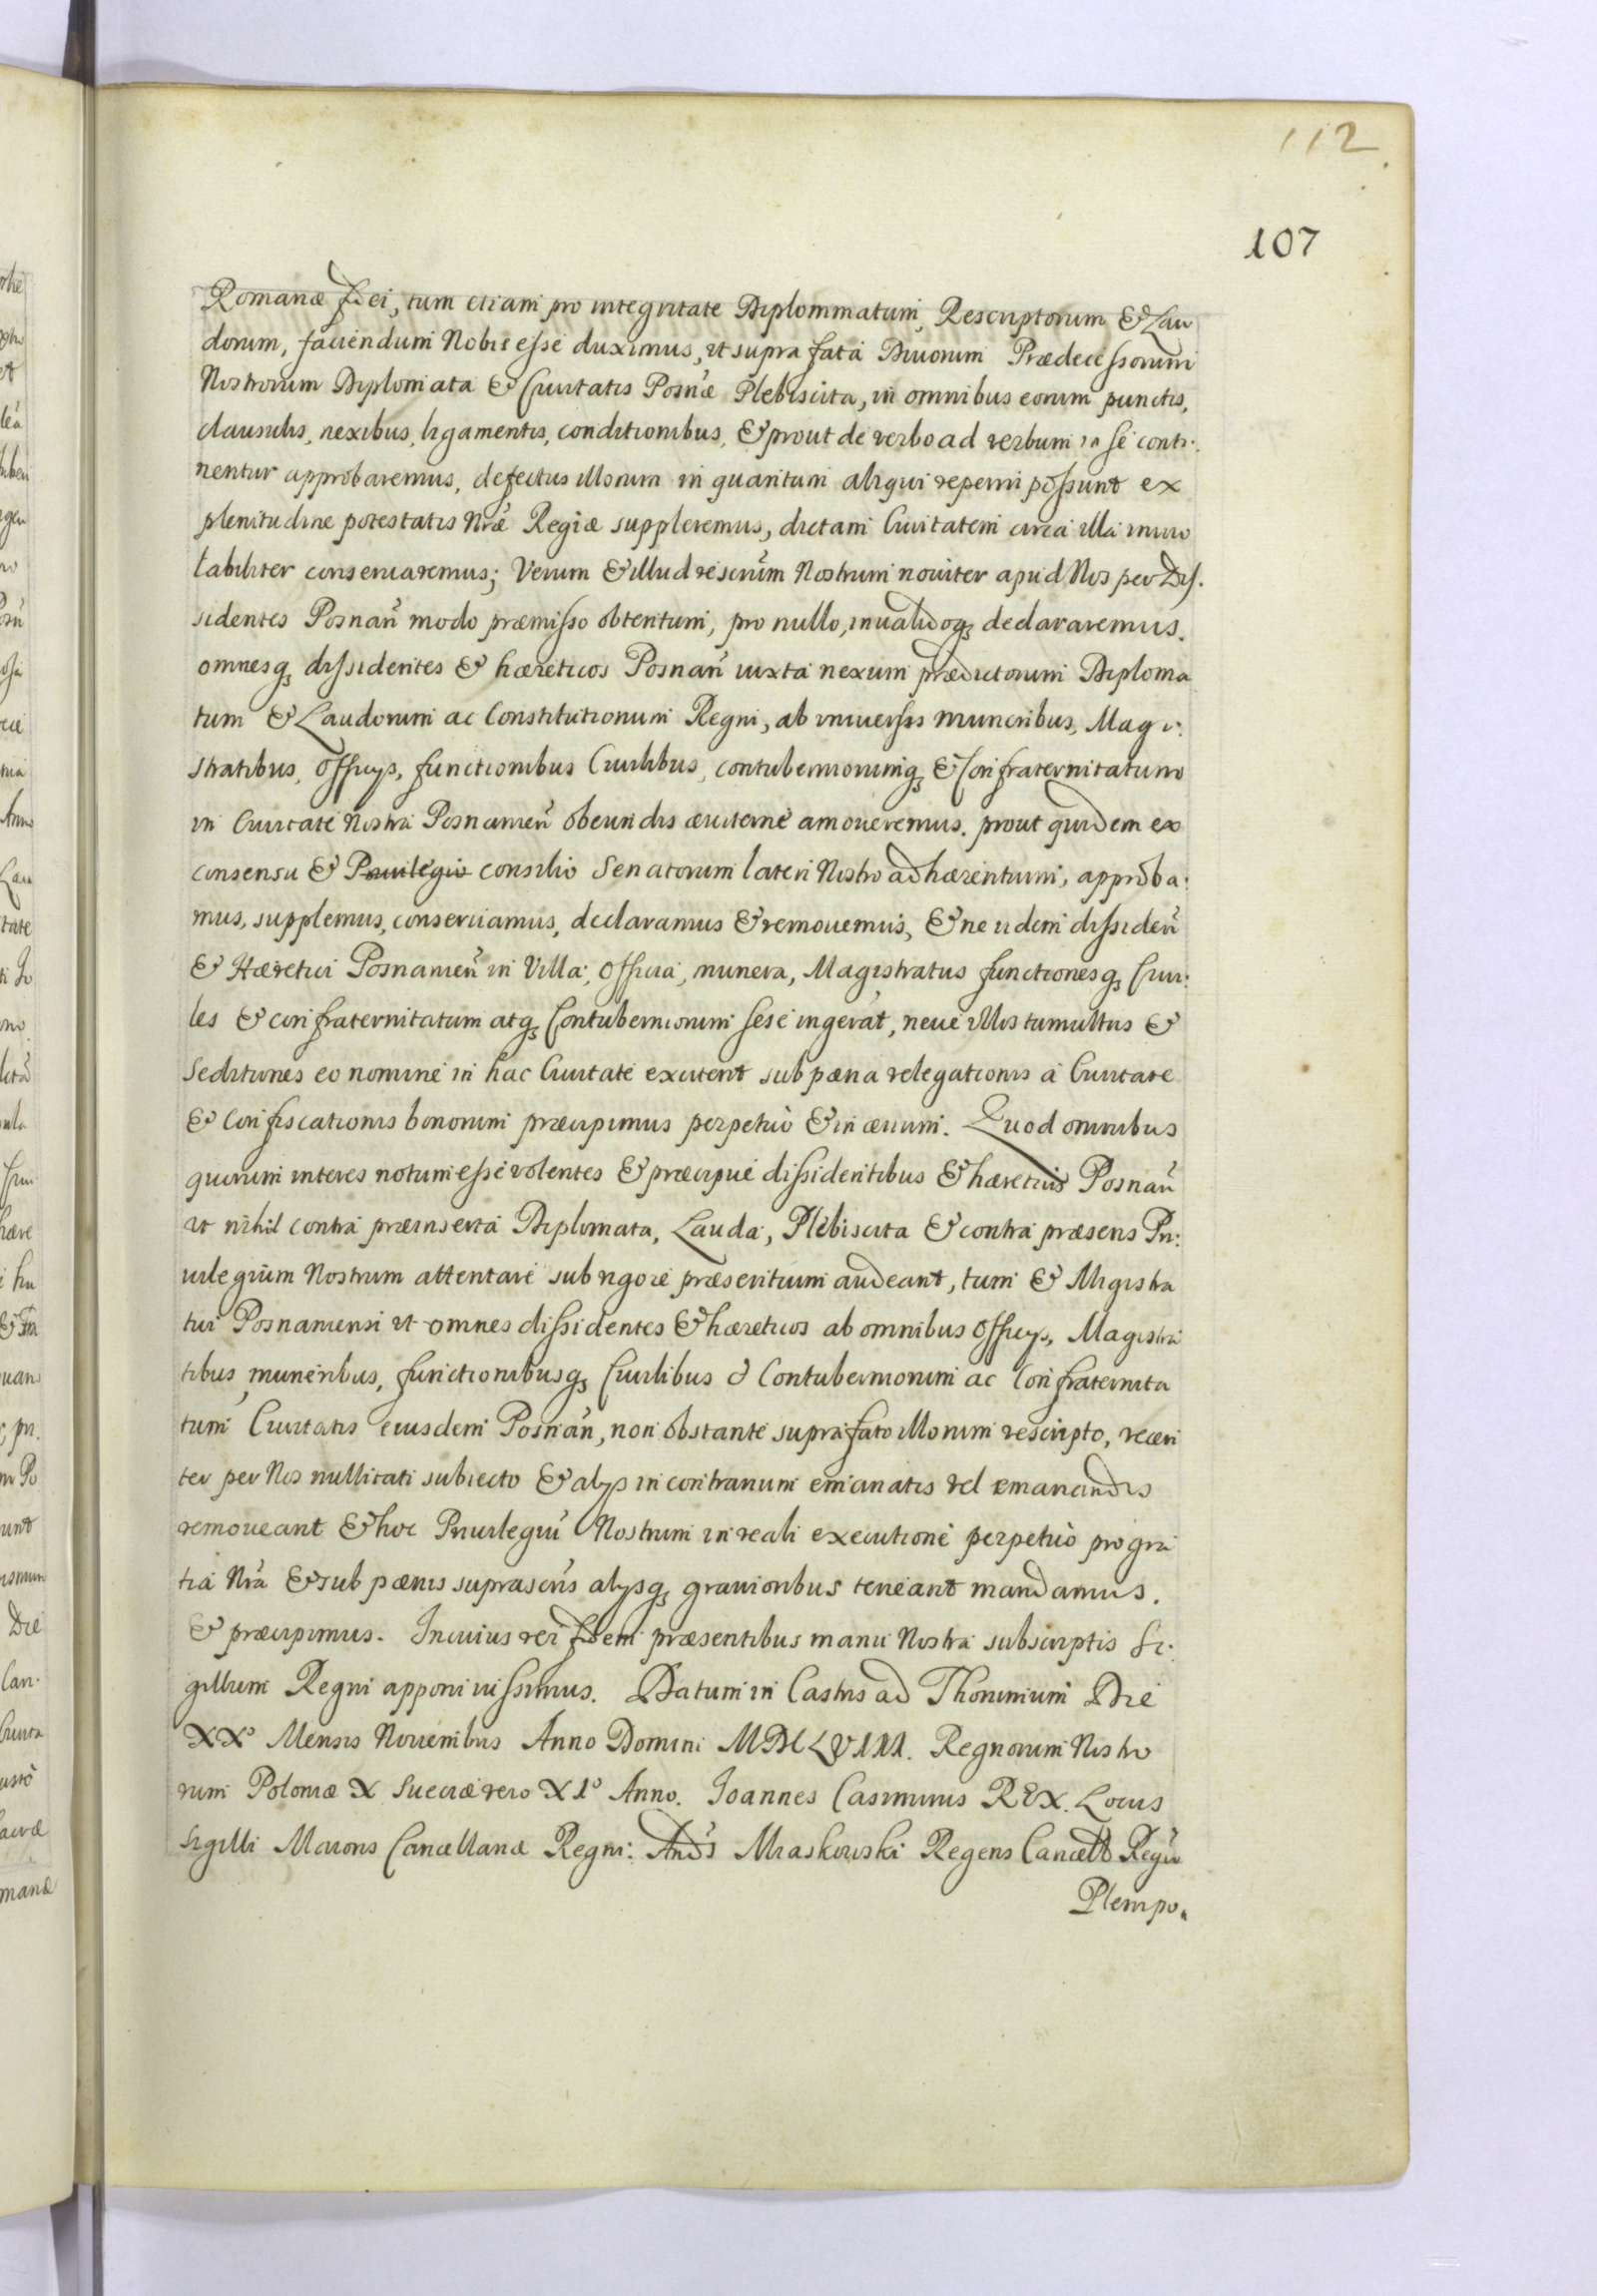 112
107
Romanæ fidei, tum etiam pro integritate Diplommatum, Rescriptorum & Lau
dorum, faciendum Nobis esse duximus, ut supra fata Diuorum Prædecessorum
Nostrorum Diplomata & Ciuitatis Posnæ Plebiscita, in omnibus eorum punctis,
clausulis, nexibus, ligamentis, conditionibus, & prout de verbo ad verbum in se conti:
nentur approbaremus, defectus illorum in quantum aliqui reperiri possunt ex
plenitudine potestatis Nrã Regiæ suppleremus, dictam Ciuitatem circa illa inuio
labiliter conseruaremus; Verum & illud rescrũm Nostrum nouiter apud Nos per Dis:
sidentes Posnañ modo præmisso obtentum, pro nullo, inualidoq; declararemus.
omnesq; dissidentes & hæreticos Posnañ iuxta nexum prædictorum Diploma
tum & Laudorum ac Constitutionum Regni, ab vniuersis muneribus, Magi:
stratibus, officys, functionibus Ciuilibus, contuberniorumq; & Confraternitatum
in Ciuitate Nostra Posnanieñ obeundis æuiterne amoueremus. prout quidem ex
consensu & Priuilegio consilio Senatorum lateri Nostro adhærentium, approba:
mus, supplemus, conseruamus, declaramus & remouemus, & ne iidem dissideñ
& Hæretici Posnanieñ in Villa, officia, munera, Magistratus functionesq; Ciui:
les & confraternitatum atq; Contuberniorum sese ingerãt, neue illos tumultus &
Seditiones eo nomine in hac Ciuitate excitent sub pæna relegationis a Ciuitate
& confiscationis bonorum præcipimus perpetuò & in æuum. Quod omnibus
quorum interes notum esse volentes & præcipue dissidentibus & hæreticis Posnañ
ut nihil contra præinserta Diplomata, Lauda, Plebiscita & contra præsens Pri:
uilegium Nostrum attentare sub rigore præsentium audeant, tum & Migistra
tui Posnaniensi ut omnes dissidentes & hæreticos ab omnibus officys, Magistra
tibus, muneribus, functionibusq; Ciuilibus & Contuberniorum ac Confraternita
tum Ciuitatis eiusdem Posnañ, non obstante suprafato illorum rescripto, recen
ter per Nos nullitati subiecto & alys in contrarium emanatis vel emanandis
remoueant & hoc Priuilegiũ Nostrum in reali executione perpetuò pro gra
tia Nrã & sub pænis suprascrĩs alysq; grauioribus teneant mandamus.
& præcipimus. In cuius rei fidem præsentibus manu Nostra subscriptis Si:
gillum Regni apponi iussimus. Datum in Castris ad Thorunium Die
XXº Mensis Nouembris Anno Domini MDCLVIII. Regnorum Nostro
rum Poloniæ X Sueciæ vero X1º Anno. Ioannes Casimirus REX. Locus
Sigilli Maioris Cancellariæ Regni: Andˢ Miaskowski Regens Cancell Regñi
Plenipo.